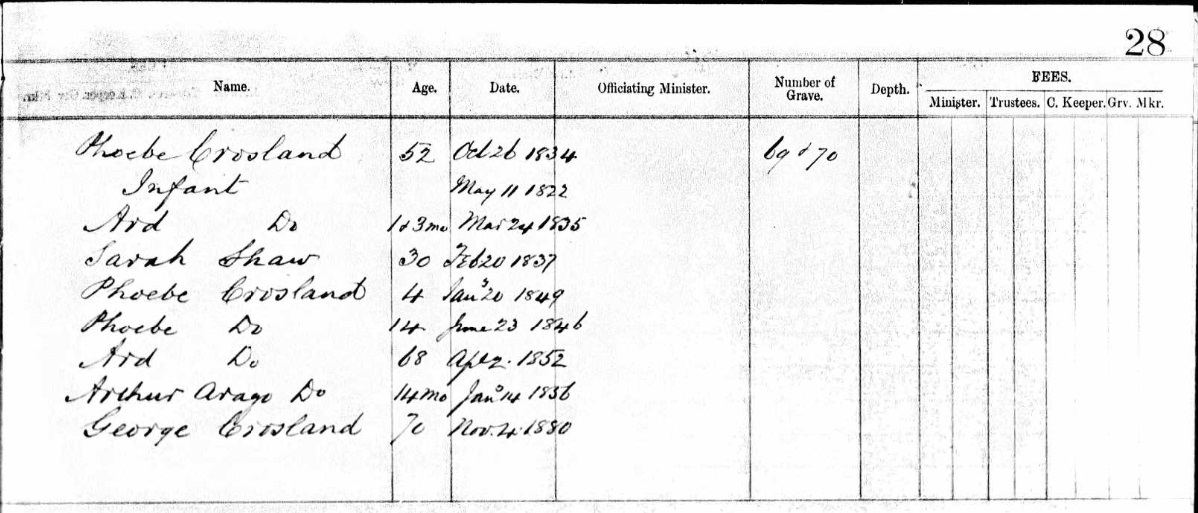 28
Name. Age. Date. Officiating Minister. Number of Grave. Depth. FEES.
Minister. Trustees. C. Keeper. Grv. Mkr.
Phoebe Crosland 52 Oct 26 1834 69 & 70
Infant May 11 1822
Ard Do 1 & 3 mo Mar 24 1835
Sarah Shaw 30 Feb 20 1837
Phoebe Crosland 4 Jany 20 1849
Phoebe Do 14 June 23 1846
Ard Do 68 Apl 2. 1852
Arthur Arago Do 14 mo Jany 14 1856
George Crosland 70 Nov. 4. 1880